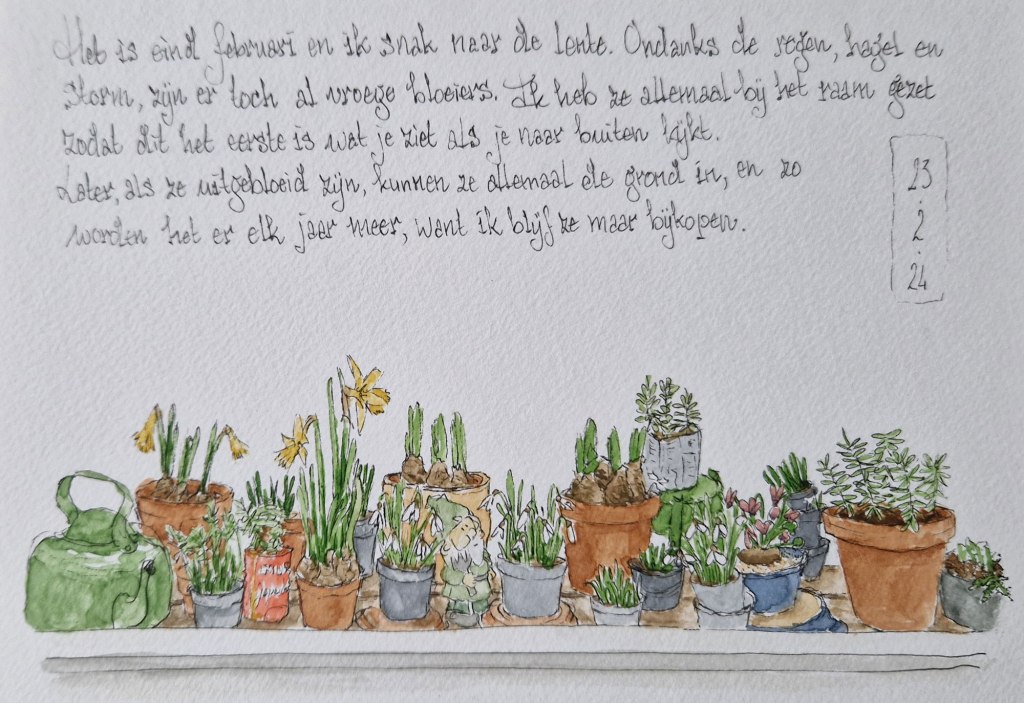 Het is eind februari en ik snak naar de lente. Ondanks de regen, hagel en
storm, zijn er toch al vroege bloeiers. Ik heb ze allemaal bij het raam gezet
zodat dit het eerste is wat je ziet als je naar buiten kijkt.
Later, als ze uitgebloeid zijn, kunnen ze allemaal de grond in, en zo
worden het er elk jaar meer, want ik blijf ze maar bijkopen.
23
.
2
.
24